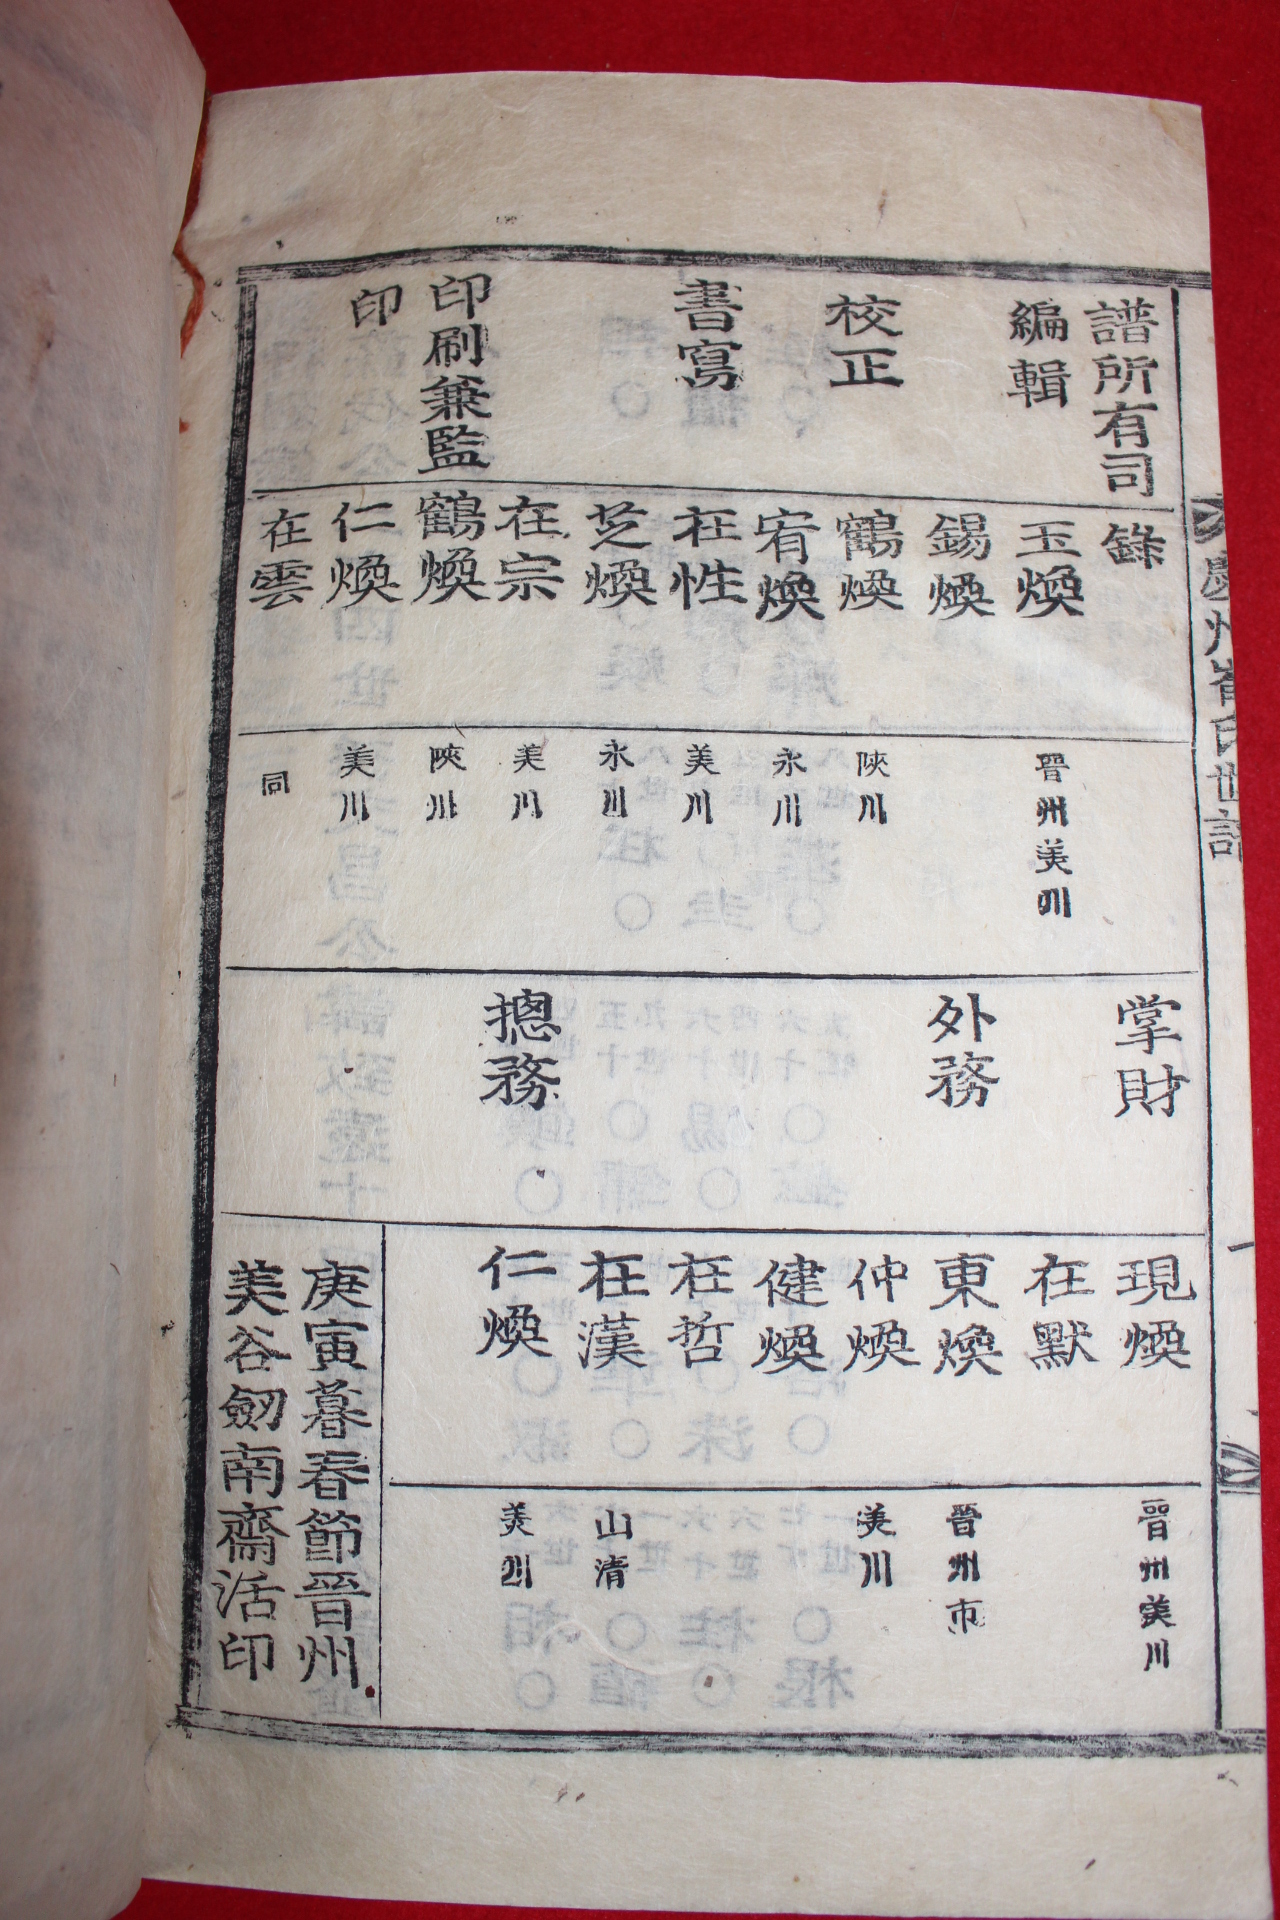 譜所有司錄
編輯
玉煥 晉州美川
錫煥
校正
鶴煥 陜川
宥煥 永川
書寫
在性 美川
芝煥 永川
在宗 美川
印刷兼監印
鶴煥 陜川
仁煥 美川
在雲 同
掌財
現煥 晉州美川
在默
外務
東煥 晉州市
仲煥 美川
健煥
在哲
在漢 山清
摠務
仁煥 美川
庚寅暮春節晉州
美谷劒南齋活印
慶州崔氏世譜